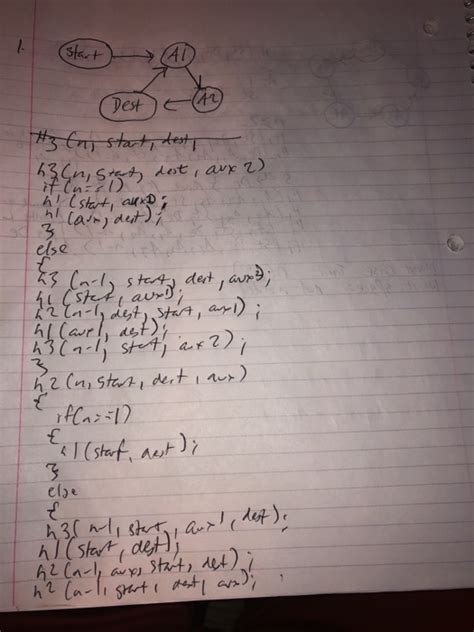 1.
Start
A1
Dest
A2
H3 (n, start, dest,
h3(n, start, dest, aux 2)
if(n==1)
h1 (start, aux);
h1 (aux, dest);
}
else
{
h3 (n-1, start, dest, aux2);
h1 (start, aux1);
h2(n-1, dest, start, aux1);
h1(aux1, dest);
h3(n-1, start, aux2);
}
h2(n, start, dest, aux)
{
if(n==1)
{
h1(start, dest);
}
else
{
h3(n-1, start, aux1, dest);
h1(start, dest);
h2(n-1, aux, start, dest);
h2(n-1, start, dest, aux);